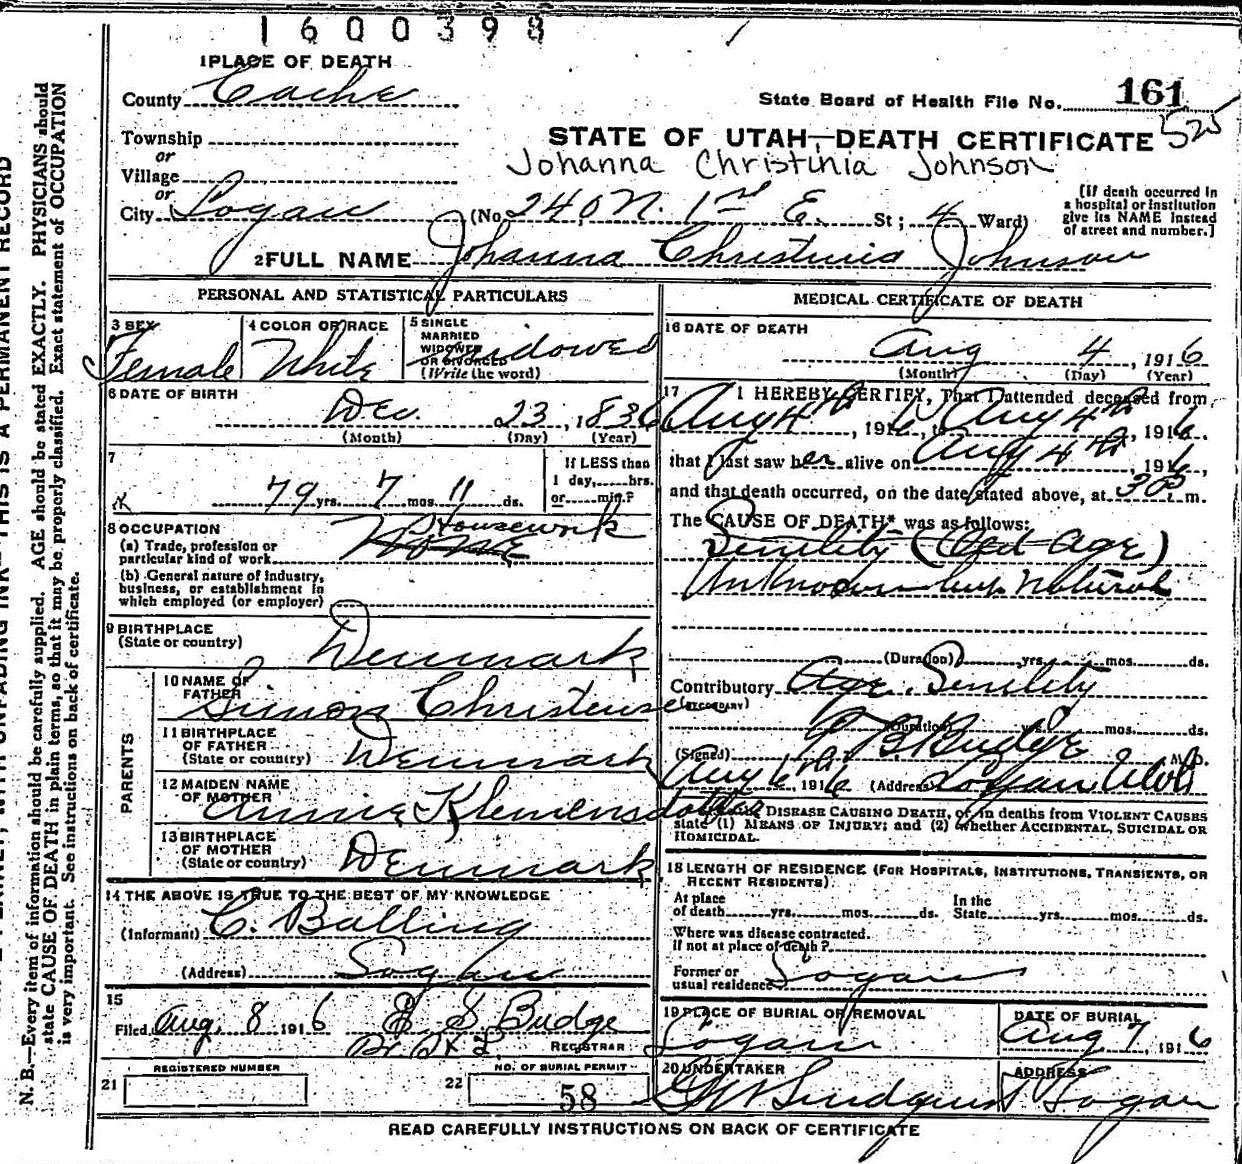 1600398
1 PLACE OF DEATH
County Cache
State Board of Health File No. 161
525
Township
or
Village
or
STATE OF UTAH—DEATH CERTIFICATE
Johanna Christinia Johnson
City Logan (No. 240 N. 1st E. St; 4 Ward)
[If death occurred in
a hospital or institution
give its NAME instead
of street and number.]
2 FULL NAME Johanna Christinia Johnson
PERSONAL AND STATISTICAL PARTICULARS
3 SEX
Female
4 COLOR OR RACE
White
5 SINGLE
MARRIED
WIDOWED
OR DIVORCED
(Write the word)
Widowed
6 DATE OF BIRTH
Dec. 23, 1836
(Month) (Day) (Year)
7
79 yrs. 7 mos. 11 ds.
If LESS than
1 day, hrs.
or min.?
8 OCCUPATION
(a) Trade, profession or
particular kind of work
None
Housework
(b) General nature of industry,
business, or establishment in
which employed (or employer)
9 BIRTHPLACE
(State or country)
Denmark
PARENTS
10 NAME OF
FATHER
Simon Christensen
11 BIRTHPLACE
OF FATHER
(State or country)
Denmark
12 MAIDEN NAME
OF MOTHER
Annie Klemensdotter
13 BIRTHPLACE
OF MOTHER
(State or country)
Denmark
14 THE ABOVE IS TRUE TO THE BEST OF MY KNOWLEDGE
(Informant) C. Balling
(Address) Logan
15
Filed Aug. 8 1916 Budge
REGISTRAR
REGISTERED NUMBER
21
NO. OF BURIAL PERMIT
22 58
MEDICAL CERTIFICATE OF DEATH
16 DATE OF DEATH
Aug 4, 1916
(Month) (Day) (Year)
17 I HEREBY CERTIFY, That I attended deceased from
Aug 4th, 1916, to Aug 4th, 1916.
that I last saw her alive on Aug 4th, 1916,
and that death occurred, on the date stated above, at 3 m.
The CAUSE OF DEATH* was as follows:
Senility (Old Age)
Unknown but Natural
(Duration) yrs. mos. ds.
Contributory Age. Senility
(SECONDARY)
(Duration) yrs. mos. ds.
(Signed) Budge M.D.
Aug 6th, 1916 (Address) Logan Utah
DISEASE CAUSING DEATH, or, in deaths from VIOLENT CAUSES
state (1) MEANS OF INJURY; and (2) whether ACCIDENTAL, SUICIDAL OR
HOMICIDAL.
18 LENGTH OF RESIDENCE (FOR HOSPITALS, INSTITUTIONS, TRANSIENTS, OR
RECENT RESIDENTS)
At place
of death yrs. mos. ds.
In the
State yrs. mos. ds.
Where was disease contracted.
If not at place of death?
Former or
usual residence Logan
19 PLACE OF BURIAL OR REMOVAL
Logan
DATE OF BURIAL
Aug 7, 1916
20 UNDERTAKER
Lindquist
ADDRESS
Logan
READ CAREFULLY INSTRUCTIONS ON BACK OF CERTIFICATE
THIS IS A PERMANENT RECORD
N. B.—Every item of information should be carefully supplied. AGE should be stated EXACTLY. PHYSICIANS should
state CAUSE OF DEATH in plain terms, so that it may be properly classified. Exact statement of OCCUPATION
is very important. See instructions on back of certificate.